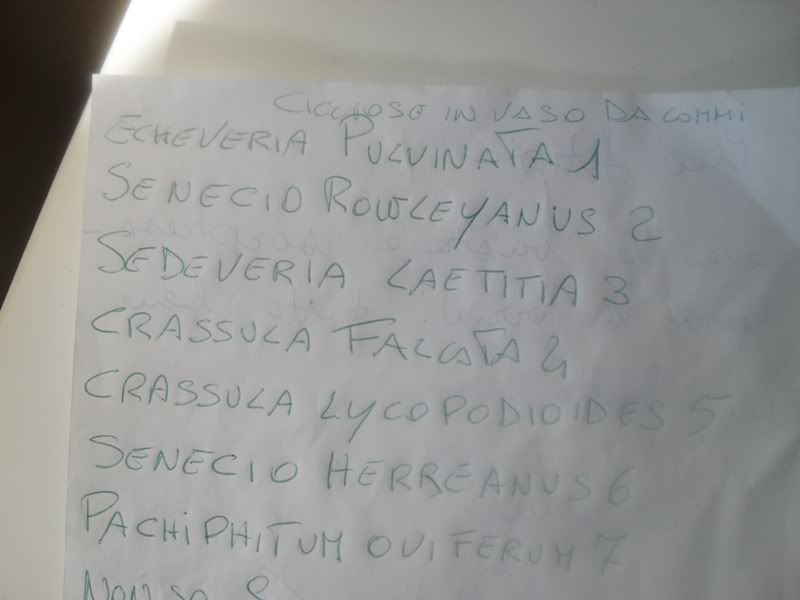 CICCIOSE IN VASO DA COMMI
ECHEVERIA PULVINATA 1
SENECIO ROWLEYANUS 2
SEDEVERIA LAETITIA 3
CRASSULA FALCATA 4
CRASSULA LYCOPODIOIDES 5
SENECIO HERREANUS 6
PACHIPHITUM OVIFERUM 7
NON SO 8